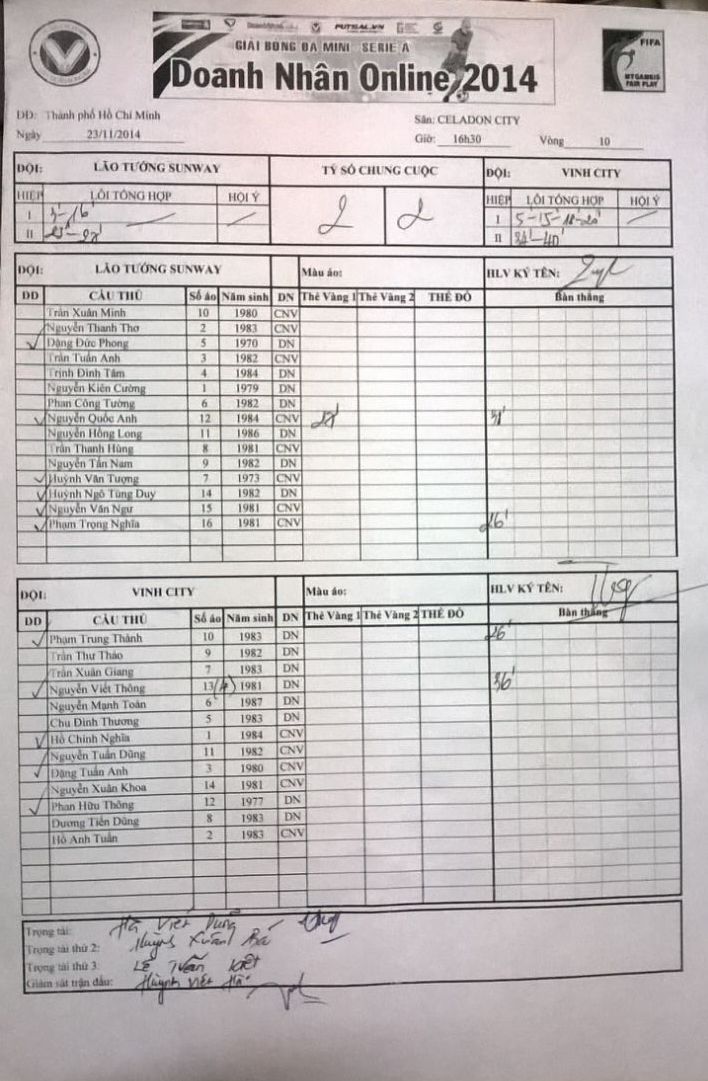 PUTSAL.VN
GIẢI BÓNG ĐÁ MINI SERIE A
Doanh Nhân Online 2014
FIFA
MY GAME IS
FAIR PLAY
DD: Thành phố Hồ Chí Minh
Sân: CELADON CITY
Ngày 23/11/2014
Giờ: 16h30 Vòng 10
ĐỘI: LÃO TƯỚNG SUNWAY TỶ SỐ CHUNG CUỘC ĐỘI: VINH CITY
HIỆP LỖI TỔNG HỢP HỘI Ý 2 2 HIỆP LỖI TỔNG HỢP HỘI Ý
I 3'-16' I 5-15'-18'-20'
II II 34'-40'
ĐỘI: LÃO TƯỚNG SUNWAY Màu áo: HLV KÝ TÊN:
DD CẦU THỦ Số áo Năm sinh DN Thẻ Vàng 1 Thẻ Vàng 2 THẺ ĐỎ Bàn thắng
Trần Xuân Minh 10 1980 CNV
Nguyễn Thanh Thơ 2 1983 CNV
Đặng Đức Phong 5 1970 DN
Trần Tuấn Anh 3 1982 CNV
Trịnh Đình Tâm 4 1984 DN
Nguyễn Kiên Cường 1 1979 DN
Phan Công Tường 6 1982 DN
Nguyễn Quốc Anh 12 1984 CNV 31'
Nguyễn Hồng Long 11 1986 DN
Trần Thanh Hùng 8 1981 CNV
Nguyễn Tấn Nam 9 1982 DN
Huỳnh Văn Tượng 7 1973 CNV
Huỳnh Ngô Tùng Duy 14 1982 DN
Nguyễn Văn Ngư 15 1981 CNV
Phạm Trọng Nghĩa 16 1981 CNV 26'
ĐỘI: VINH CITY Màu áo: HLV KÝ TÊN:
DD CẦU THỦ Số áo Năm sinh DN Thẻ Vàng 1 Thẻ Vàng 2 THẺ ĐỎ Bàn thắng
Phạm Trung Thành 10 1983 DN 26'
Trần Thư Thảo 9 1982 DN
Trần Xuân Giang 7 1983 DN
Nguyễn Viết Thông 13 1981 DN 36'
Nguyễn Mạnh Toàn 6 1987 DN
Chu Đình Thương 5 1983 DN
Hồ Chính Nghĩa 1 1984 CNV
Nguyễn Tuấn Dũng 11 1982 CNV
Đặng Tuấn Anh 3 1980 CNV
Nguyễn Xuân Khoa 14 1981 CNV
Phan Hữu Thông 12 1977 DN
Dương Tiến Dũng 8 1983 DN
Hồ Anh Tuấn 2 1983 CNV
Trọng tài: Hà Viết Dũng
Trọng tài thứ 2: Huỳnh Xuân Bá
Trọng tài thứ 3: Lê Tuấn Kiệt
Giám sát trận đấu: Huỳnh Việt Hà